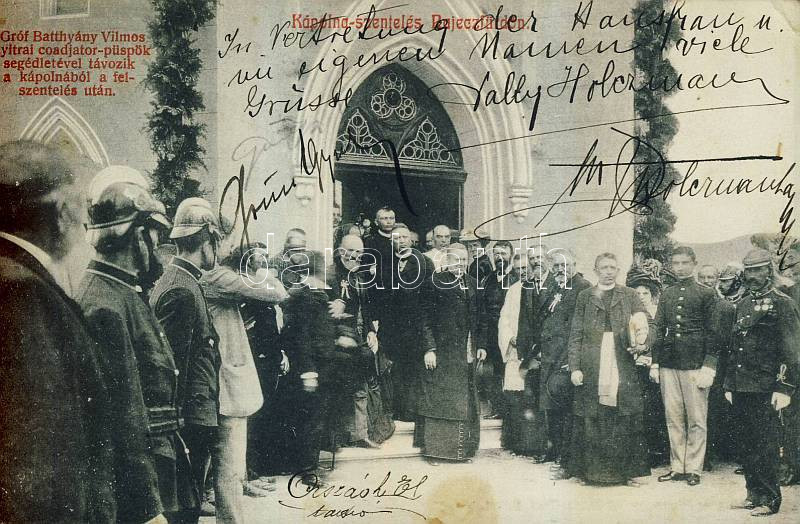 Kápolna-szentelés Rajeczfürdőn.
Gróf Batthyány Vilmos
nyitrai coadjator-püspök
segédletével távozik
a kápolnából a fel-
szentelés után.
In Vertretung der Hansfrau u.
im eigenen Namen viele
Grüsse Sally Holczmann
Grün
Holczmann
Országh
darabanth.com